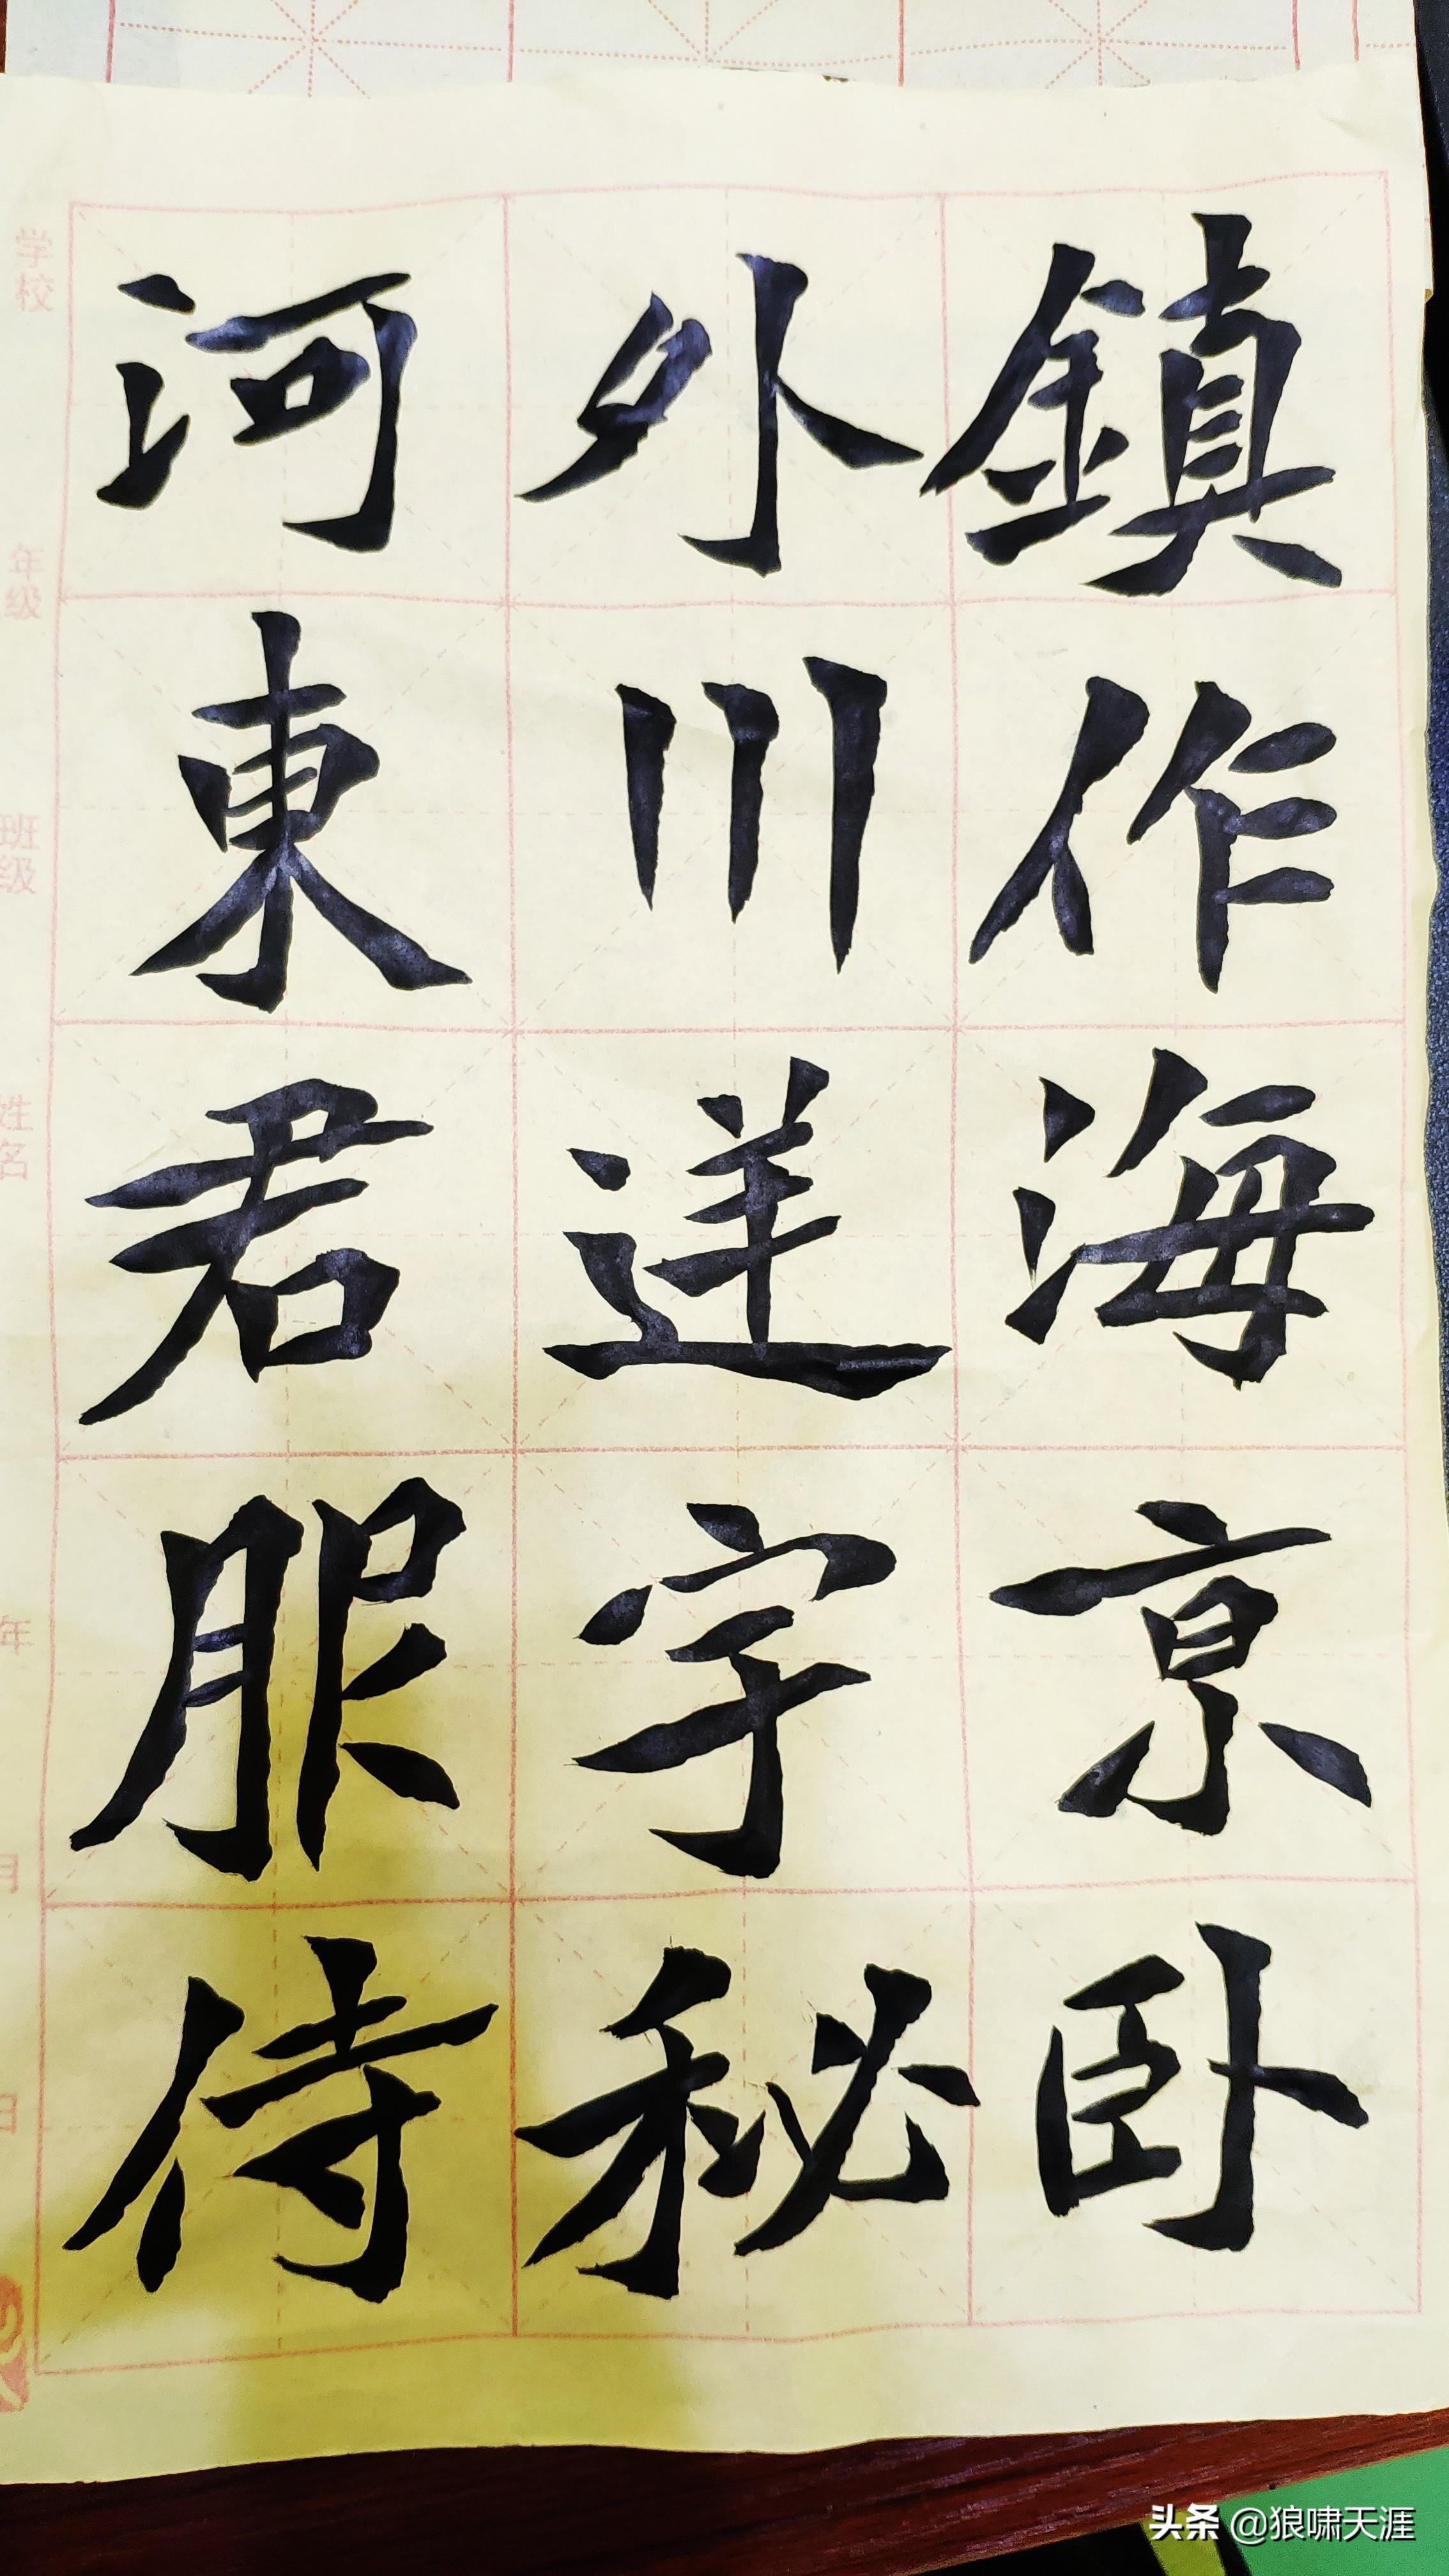 鎮作海亰卧
外川字秘
河東君服侍
学校
年级
班级
姓名
年
月
日
头条 @狼啸天涯